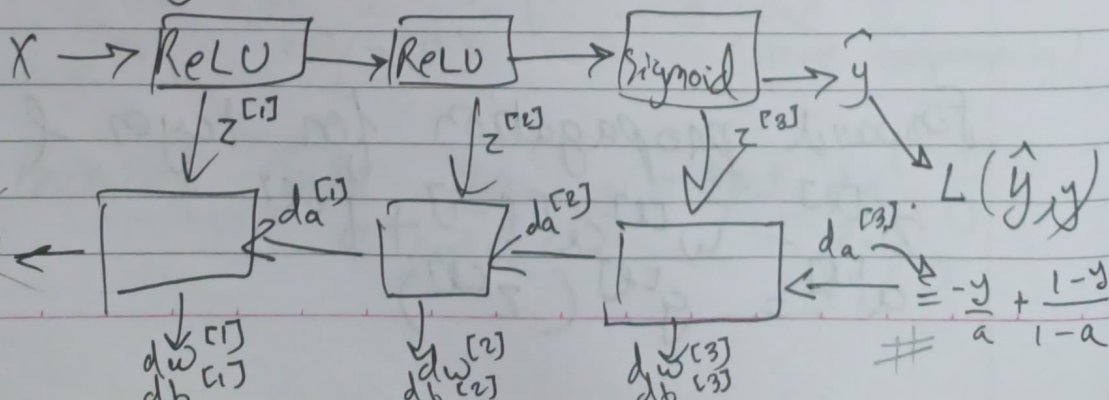 X → ReLU → ReLU → Sigmoid → ŷ
z[1] z[2] z[3]
L(ŷ,y)
da[1] da[2] da[3]
= -y/a + (1-y)/(1-a)
dw[1] dw[2] dw[3]
db[1] db[2] db[3]